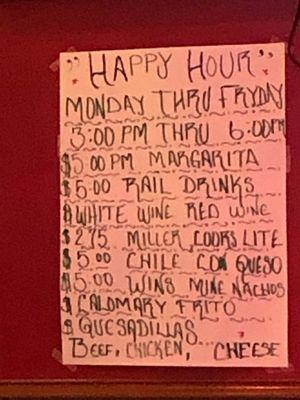 "HAPPY HOUR"
MONDAY THRU FRYDAY
3:00 PM THRU 6:00PM
$5 00 PM MARGARITA
$5:00 RAIL DRINKS
$WHITE WINE RED WINE
$2.75 MILLER COORS LITE
$5.00 CHILE CON QUESO
$5.00 WINS MINE NACHOS
$CALOMARY FRITO
$QUESADILLAS...
BEEF, CHICKEN, CHEESE